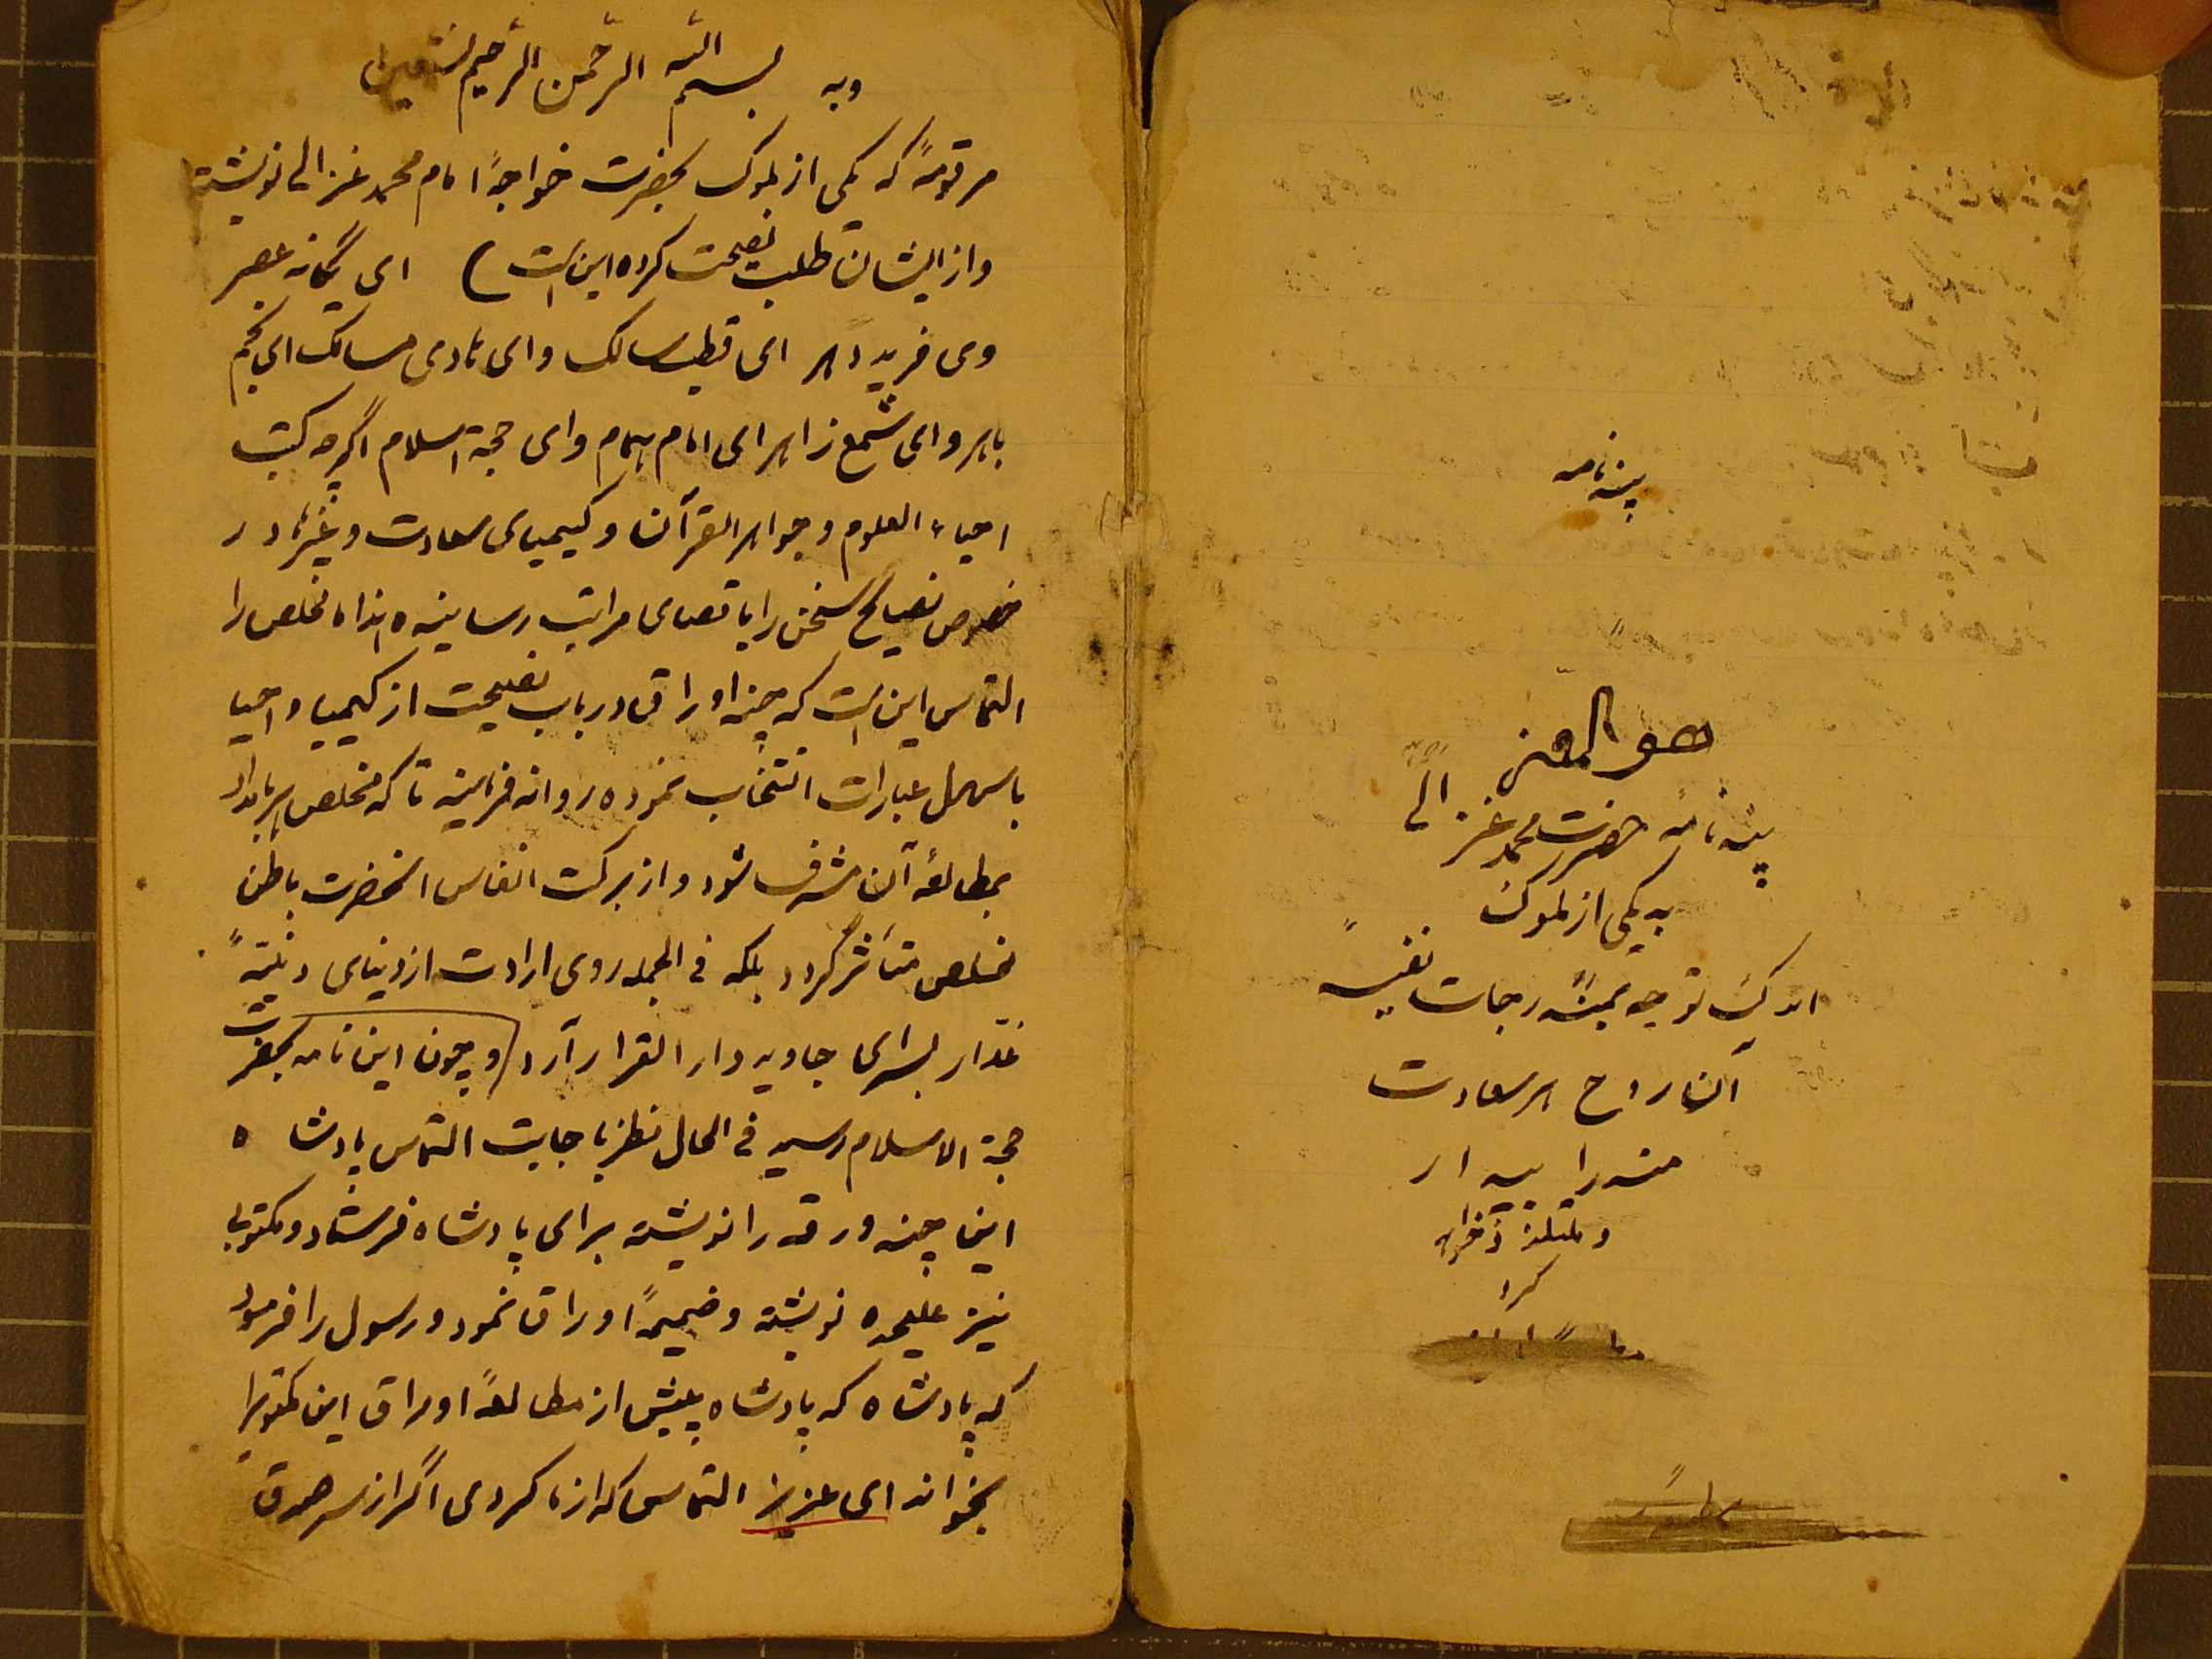 پندنامه
هو المعز
پند نامهٔ حضرت محمد غزالی
به یکی از ملوک
اندک توجه بمندرجات نفیسهٔ
آن روح پر سعادت
کرد
وبه بسم الله الرحمن الرحیم نستعین
مرقومهٔ که یکی از ملوک بحضرت خواجهٔ امام محمد غزالی نوشته
و از ایشان طلب نصیحت کرده این است) ای یگانه عصر
وی فرید دهر ای قطب سالک و ای هادی مسالک ای نجم
باهر و ای شمع زاهر ای امام همام و ای حجة اسلام اگرچه کتب
احیاء العلوم و جواهر القرآن و کیمیای سعادت و غیرها در
خصوص نصایح سخن را باقصای مراتب رسانیده اند اما مخلص را
التماس این است که چند اوراق در باب نصیحت از کیمیا و احیا
باسهل عبارات انتخاب نموده روانه فرمایند تا که مخلص هر بامداد
بمطالعهٔ آن مشرف شود و از برکت انفاس آنحضرت باطن
مخلص متأثر گردد بلکه فی الجمله روی ارادت از دنیای دنیهٔ
غدّار بسرای جاوید دار القرار آرد و چون این نامه بحضرت
حجة الاسلام رسید فی الحال نظر باجابت التماس پادشاه
این چند ورقه را نوشته برای پادشاه فرستاد و مکتوبی
نیز علیحده نوشته و ضمیمهٔ اوراق نمود و رسول را فرمود
که پادشاه که پادشاه پیش از مطالعهٔ اوراق این مکتوبرا
بخواند ای عزیز التماس که از ما کردی اگر از سر صدق